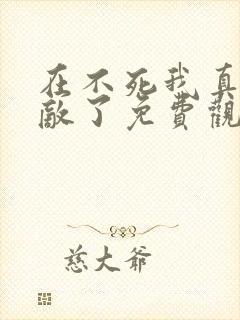 在不死我真
敵了免費觀
慈大爺